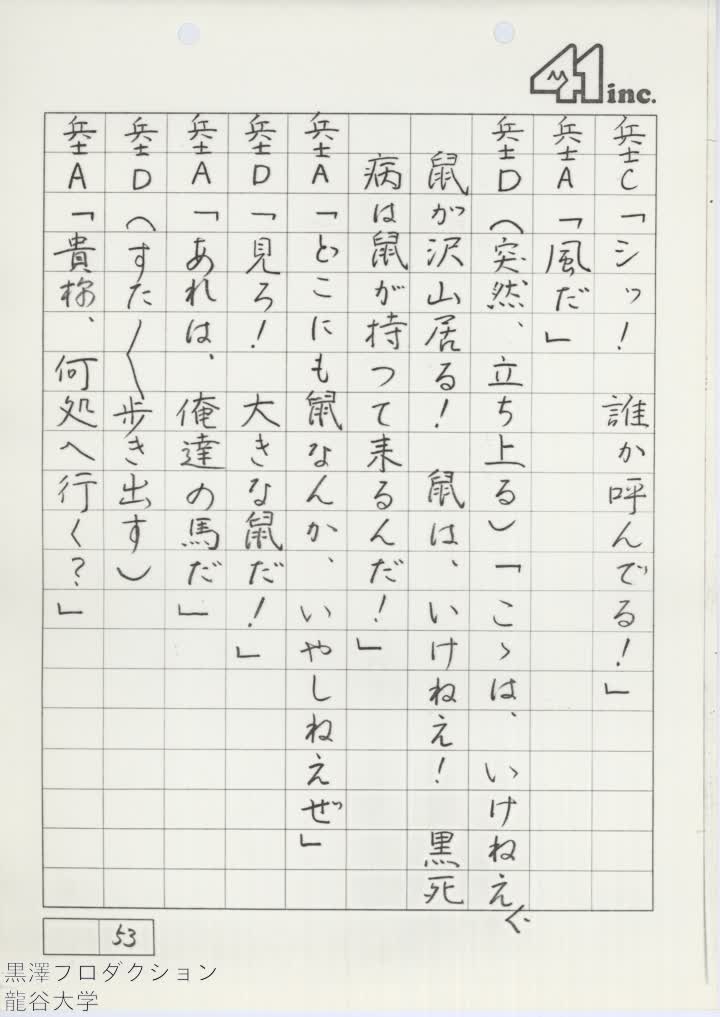 41 inc.
兵士C「シッ！　誰か呼んでる！」
兵士A「風だ」
兵士D（突然、立ち上る）「こゝは、いけねえ〱
鼠が沢山居る！　鼠は、いけねえ！　黒死
病は鼠が持つて来るんだ！」
兵士A「どこにも鼠なんか、いやしねえぜ」
兵士D「見ろ！　大きな鼠だ！」
兵士A「あれは、俺達の馬だ」
兵士D（すた〱歩き出す）
兵士A「貴様、何処へ行く？」
53
黒澤プロダクション
龍谷大学